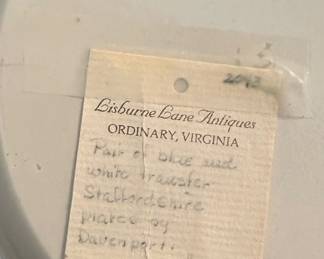 2043
Lisburne Lane Antiques
ORDINARY, VIRGINIA
Pair of blue and
white transfer
Staffordshire
by
Davenport.